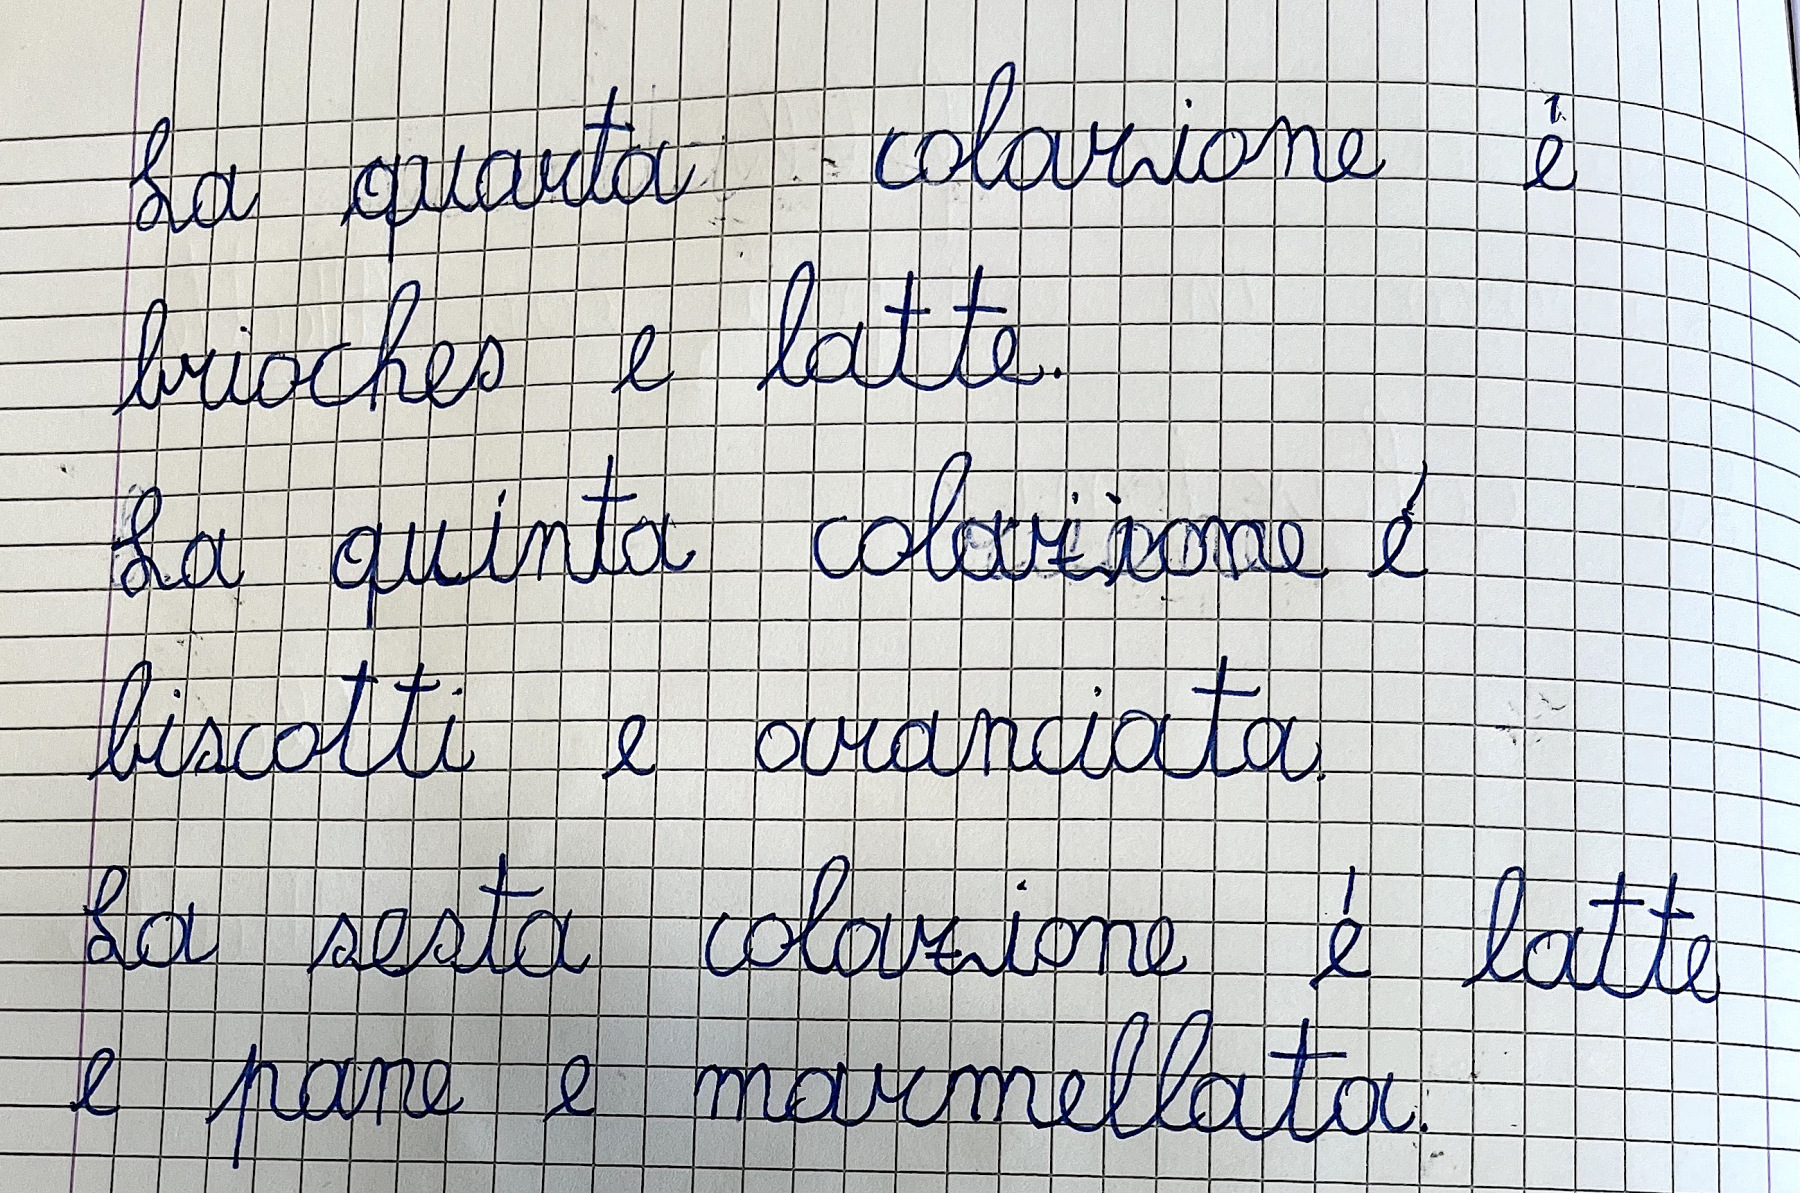 La quarta colazione è
brioches e latte.
La quinta colazione é
biscotti e aranciata.
La sesta colazione é latte
e pane e marmellata.